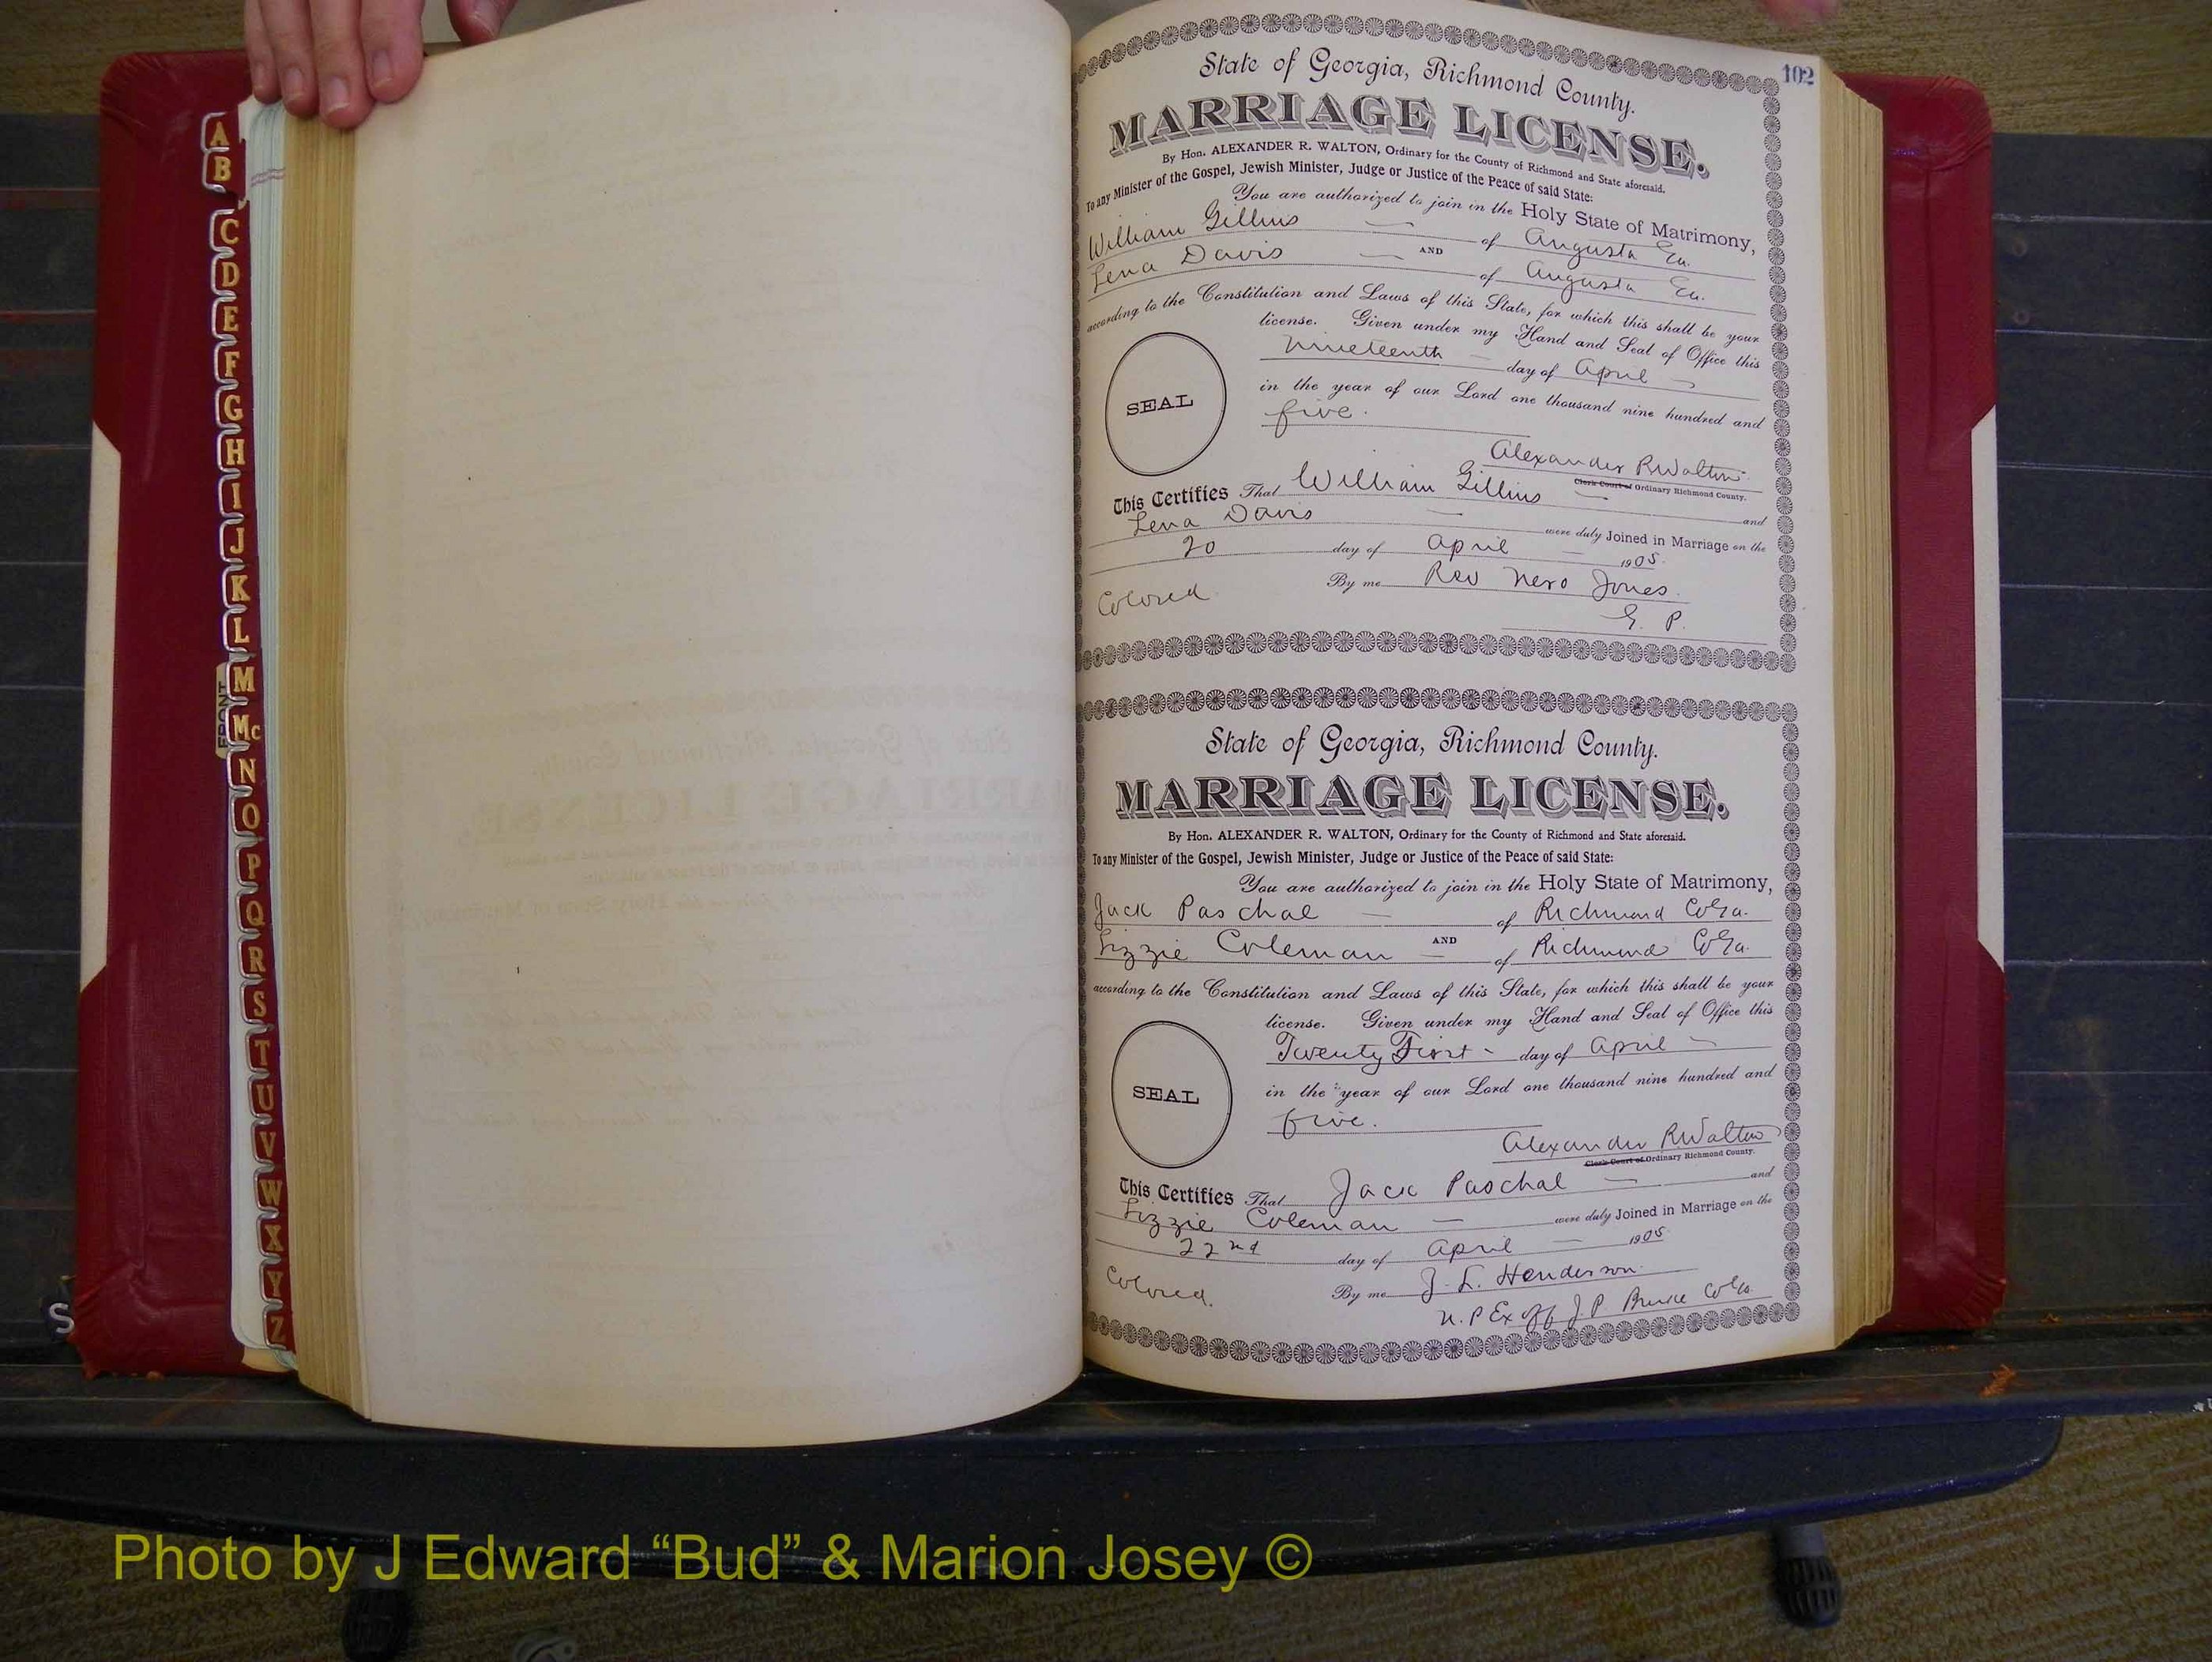 A
B
C
D
E
F
G
H
I
J
K
L
M
Mc
N
O
P
Q
R
S
T
U
V
W
X
Y
Z
FRONT
102
State of Georgia, Richmond County.
MARRIAGE LICENSE.
By Hon. ALEXANDER R. WALTON, Ordinary for the County of Richmond and State aforesaid.
To any Minister of the Gospel, Jewish Minister, Judge or Justice of the Peace of said State:
You are authorized to join in the Holy State of Matrimony,
William Gillins of Augusta Ga.
AND
Lena Davis of Augusta Ga.
according to the Constitution and Laws of this State, for which this shall be your
license. Given under my Hand and Seal of Office this
nineteenth day of April
in the year of our Lord one thousand nine hundred and
five.
SEAL
Alexander R Walton
Clerk Court of Ordinary Richmond County.
This Certifies That William Gillins and
Lena Davis were duly Joined in Marriage on the
20 day of April 1905.
Colored By me Rev Nero Jones.
G. P.
State of Georgia, Richmond County.
MARRIAGE LICENSE.
By Hon. ALEXANDER R. WALTON, Ordinary for the County of Richmond and State aforesaid.
To any Minister of the Gospel, Jewish Minister, Judge or Justice of the Peace of said State:
You are authorized to join in the Holy State of Matrimony,
Jack Paschal of Richmond Co Ga.
AND
Lizzie Coleman of Richmond Co Ga.
according to the Constitution and Laws of this State, for which this shall be your
license. Given under my Hand and Seal of Office this
Twenty First day of April
in the year of our Lord one thousand nine hundred and
five.
SEAL
Alexander R Walton
Clerk Court of Ordinary Richmond County.
This Certifies That Jack Paschal and
Lizzie Coleman were duly Joined in Marriage on the
22nd day of April 1905
Colored. By me J. L. Henderson.
N. P Ex off J. P Burke Co Ga.
Photo by J Edward “Bud” & Marion Josey ©